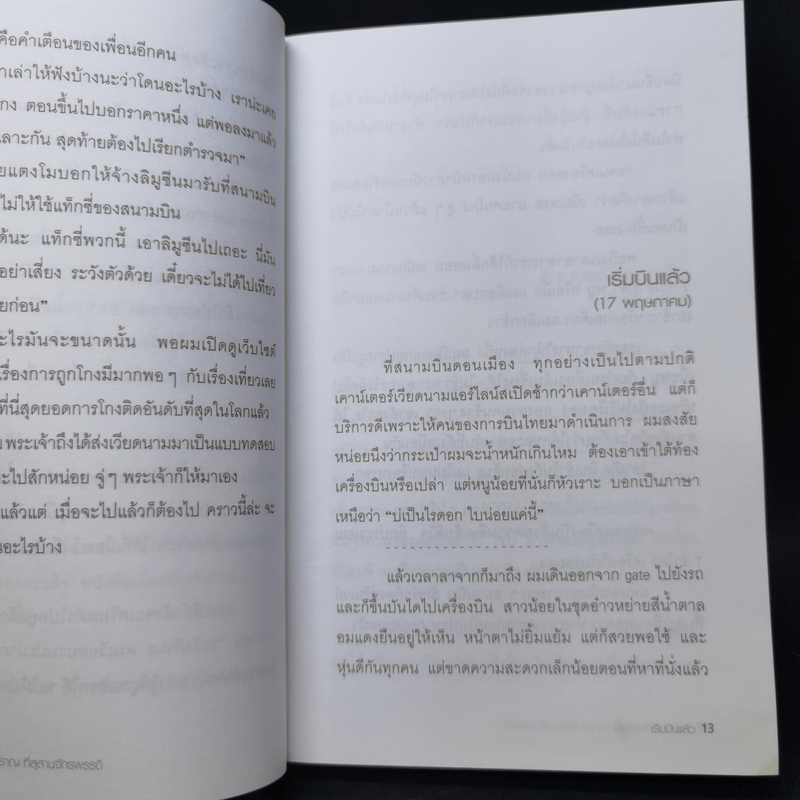 คือคำเตือนของเพื่อนอีกคน
าเล่าให้ฟังบ้างนะว่าโดนอะไรบ้าง เราน่ะเคย
กง ตอนขึ้นไปบอกราคาหนึ่ง แต่พอลงมาแล้ว
ลาะกัน สุดท้ายต้องไปเรียกตำรวจมา”
ยแตงโมบอกให้จ้างลิมูซีนมารับที่สนามบิน
ไม่ให้ใช้แท็กซี่ของสนามบิน
ด้นะ แท็กซี่พวกนี้ เอาลิมูซีนไปเถอะ นี่มัน
อย่าเสี่ยง ระวังตัวด้วย เดี๋ยวจะไม่ได้ไปเที่ยว
ยก่อน”
ะไรมันจะขนาดนั้น พอผมเปิดดูเว็บไซต์
เรื่องการถูกโกงมีมากพอๆ กับเรื่องเที่ยวเลย
ที่นี่สุดยอดการโกงติดอันดับที่สุดในโลกแล้ว
พระเจ้าถึงได้ส่งเวียดนามมาเป็นแบบทดสอบ
ะไปสักหน่อย จู่ๆ พระเจ้าก็ให้มาเอง
แล้วแต่ เมื่อจะไปแล้วก็ต้องไป คราวนี้ล่ะ จะ
นอะไรบ้าง
ราญ ที่สุสานจักรพรรดิ
เริ่มบินแล้ว
(17 พฤษภาคม)
ที่สนามบินดอนเมือง ทุกอย่างเป็นไปตามปกติ
เคาน์เตอร์เวียดนามแอร์ไลน์สเปิดช้ากว่าเคาน์เตอร์อื่น แต่ก็
บริการดีเพราะให้คนของการบินไทยมาดำเนินการ ผมสงสัย
หน่อยนึงว่ากระเป๋าผมจะน้ำหนักเกินไหม ต้องเอาเข้าใต้ท้อง
เครื่องบินหรือเปล่า แต่หนูน้อยที่นั่นก็หัวเราะ บอกเป็นภาษา
เหนือว่า “บ่เป็นไรดอก ใบน่อยแค่นี้”
แล้วเวลาลาจากก็มาถึง ผมเดินออกจาก gate ไปยังรถ
และก็ขึ้นบันไดไปเครื่องบิน สาวน้อยในชุดอ๋าวหย่ายสีน้ำตาล
อมแดงยืนอยู่ให้เห็น หน้าตาไม่ยิ้มแย้ม แต่ก็สวยพอใช้ และ
หุ่นดีกันทุกคน แต่ขาดความสะดวกเล็กน้อยตอนที่หาที่นั่งแล้ว
เริ่มบินแล้ว 13